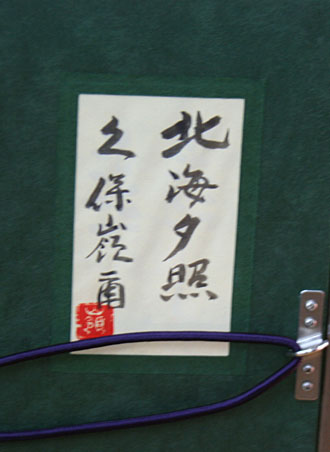 北海夕照
久保嶺爾